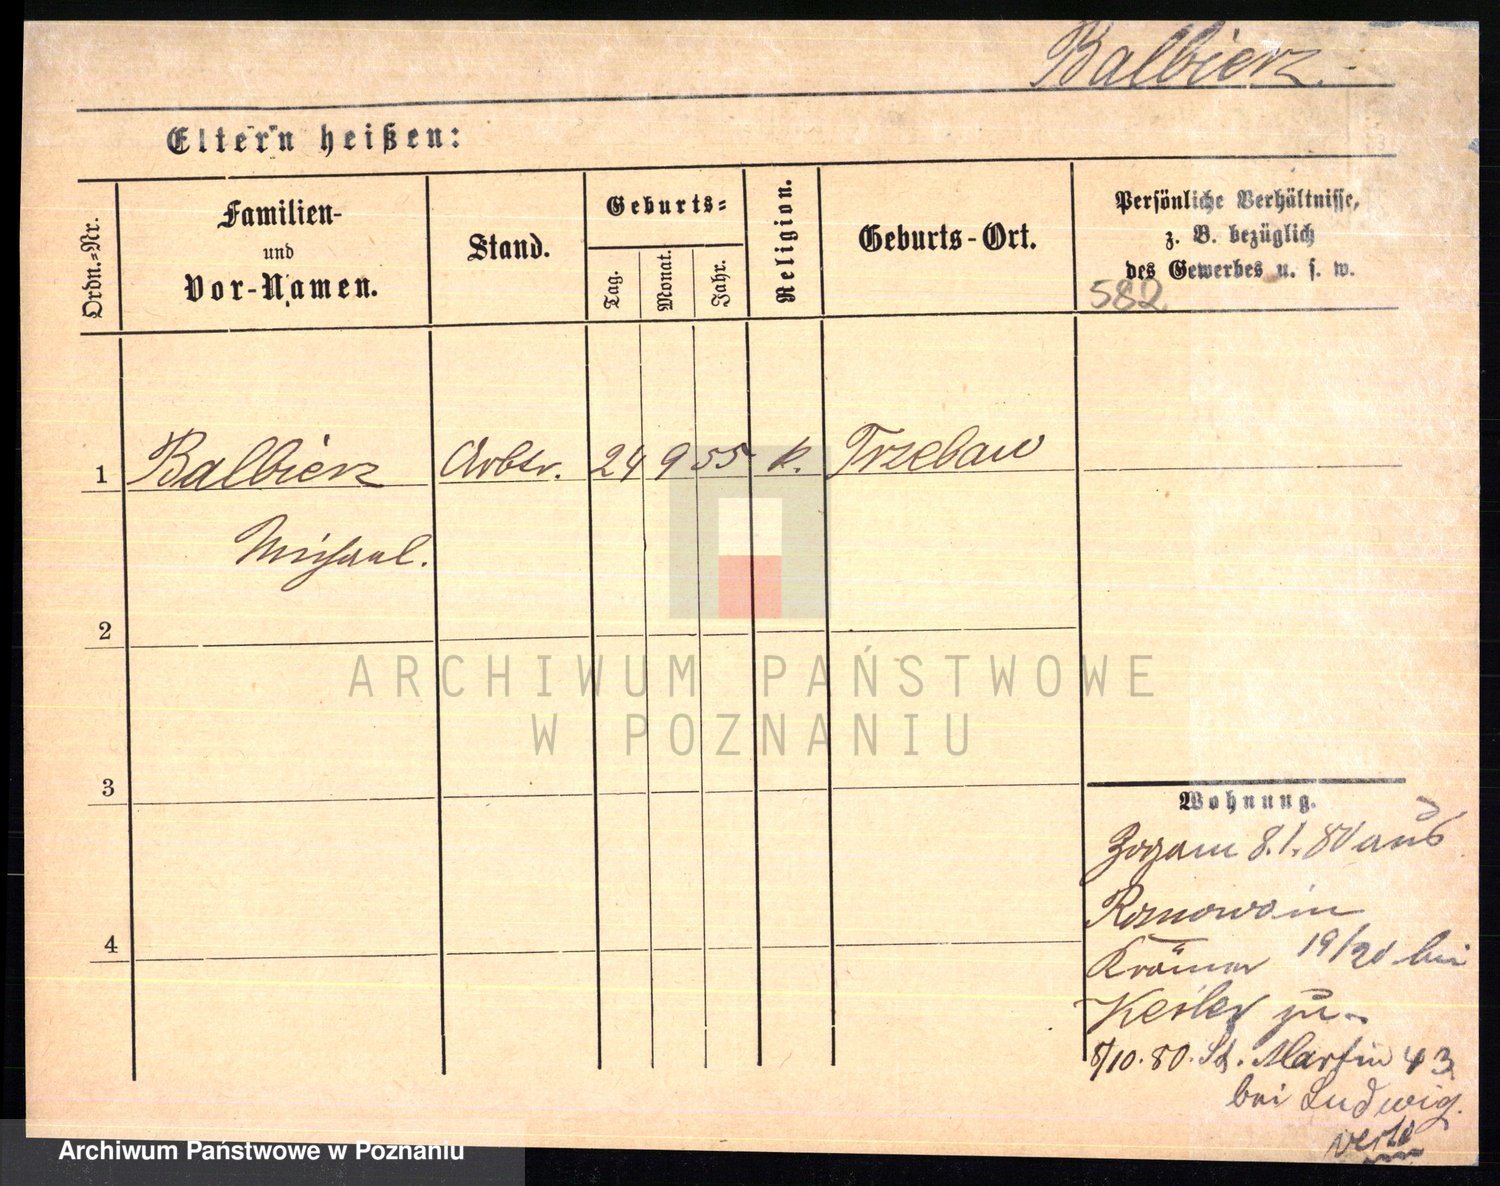 Balbierz.
Eltern heißen:
Ordn.=Nr.
Familien-
und
Vor-Namen.
Stand.
Geburts=
Tag.
Monat.
Jahr.
Religion.
Geburts-Ort.
Persönliche Verhältnisse,
z. B. bezüglich
des Gewerbes u. s. w.
582
1 Balbierz Arbtr. 24 9 55 k. Trzebaw
Michael.
2
3
4
Wohnung.
Zogam 8.1.80 aus
19/20 bei
Kesler zu
8/10.80. St. Martin 43
bei Ludwig.
verte
ARCHIWUM PAŃSTWOWE
W POZNANIU
Archiwum Państwowe w Poznaniu